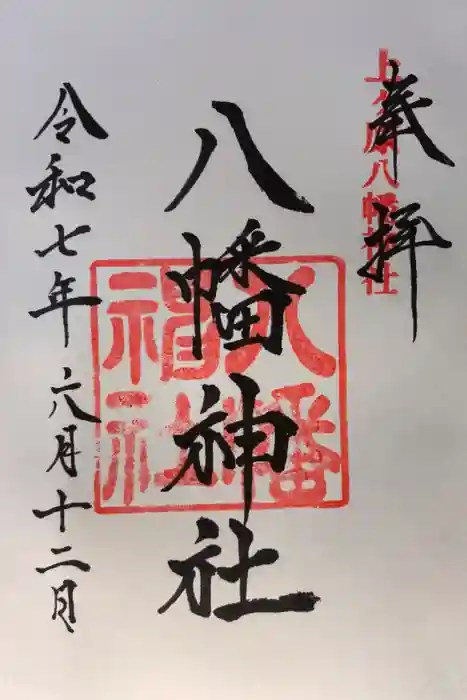 奉拝
八幡神社
八幡神社
八幡
神社
令和七年六月十二日